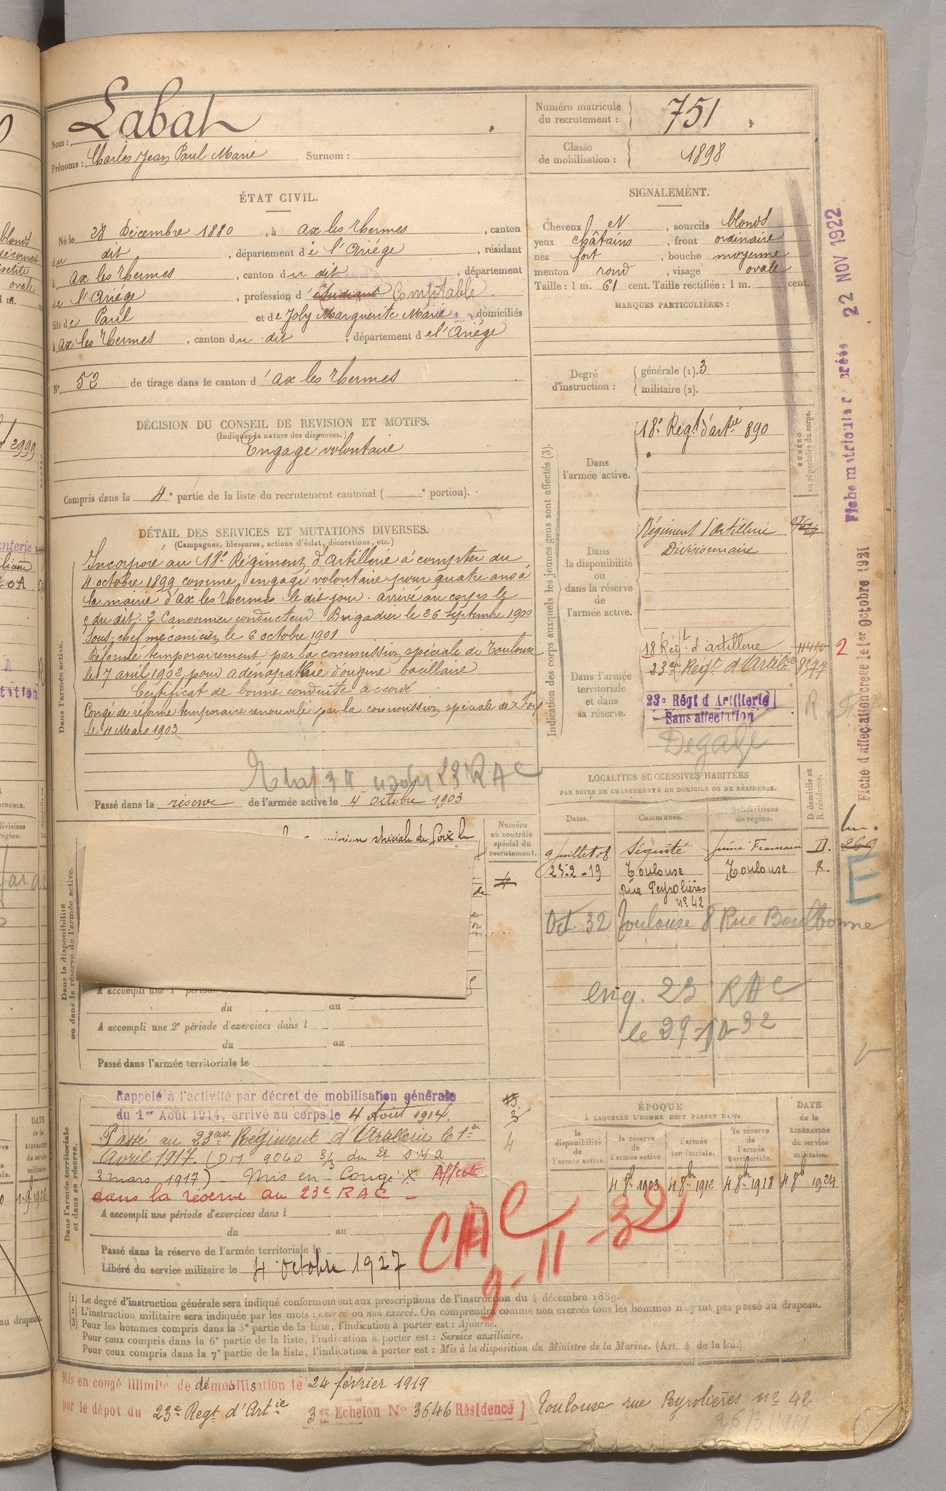 Nom : Labat
Prénoms : Charles Jean Paul Marie Surnom :
Numéro matricule du recrutement : 751
Classe de mobilisation : 1898
ÉTAT CIVIL.
Né le 28 décembre 1880, à Ax les Thermes, canton
du dit, département de l'Ariége, résidant
à Ax les Thermes, canton du dit, département
de l'Ariége, profession d'étudiant Comptable
fils de Paul et de Joly Marguerite Marie, domiciliés
à Ax les Thermes, canton du dit, département de l'Ariége
N° 52 de tirage dans le canton d'Ax les Thermes
SIGNALEMENT.
Cheveux N, sourcils blonds
yeux châtains, front ordinaire
nez fort, bouche moyenne
menton rond, visage ovale
Taille : 1 m. 61 cent. Taille rectifiée : 1 m. cent.
MARQUES PARTICULIÈRES :
Degré d'instruction : générale (1). 3
militaire (2).
DÉCISION DU CONSEIL DE REVISION ET MOTIFS.
(Indiquer la nature des dispenses.)
Engagé volontaire
Compris dans la 4e partie de la liste du recrutement cantonal ( e portion).
DÉTAIL DES SERVICES ET MUTATIONS DIVERSES.
(Campagnes, blessures, actions d'éclat, décorations, etc.)
Dans l'armée active.
Incorporé au 18e Régiment d'Artillerie à compter du
4 octobre 1899 comme engagé volontaire pour quatre ans à
la mairie d'Ax les Thermes le dit jour. arrivé au corps le
du dit. 2 Canonnier conducteur Brigadier le 26 septembre 1900
Sous chef mécanicien le 6 octobre 1901
Réformé temporairement par la commission spéciale de Toulouse
le 7 avril 1902 pour adénopathie d'origine bacillaire
Certificat de bonne conduite accordé
Congé de réforme temporaire renouvelé par la commission spéciale de Foix
le 4 Mars 1903
Passé dans la réserve de l'armée active le 4 octobre 1903
Indication des corps auxquels les jeunes gens sont affectés (3).
NUMÉRO au répertoire du corps.
Dans l'armée active.
18e Régt d'artie 890
Dans la disponibilité ou dans la réserve de l'armée active.
Régiment d'Artillerie
Divisionnaire
Dans l'armée territoriale et dans sa réserve.
18 Régt d'artillerie
23e Régt d'Artie
23e Régt d'Artillerie
Sans affectation
Dégagé
LOCALITÉS SUCCESSIVES HABITÉES
PAR SUITE DE CHANGEMENTS DE DOMICILE OU DE RÉSIDENCE.
Dates. Communes. Subdivisions de région. D domicile ou R résidence.
9 juillet 08 D.
25-2-19 Toulouse Toulouse R.
rue Peyrolières
n° 42
Oct. 32 Toulouse 8 Rue Boulbonne
eng. 23 RAC
Dans la disponibilité ou dans la réserve de l'armée active.
Numéro au contrôle spécial du recrutement.
spéciale de Foix le
A accompli une 1re
du au
A accompli une 2e période d'exercices dans l
du au
Passé dans l'armée territoriale le
Dans l'armée territoriale et dans sa réserve.
Rappelé à l'activité par décret de mobilisation générale
du 1er Août 1914, arrivé au corps le 4 Août 1914
Passé au 23e Régiment d'Artillerie le 1er
avril 1917.
3 mars 1917) Mis en Congé Affecté
dans la réserve au 23e RAC
A accompli une période d'exercices dans l
du au
Passé dans la réserve de l'armée territoriale le
Libéré du service militaire le 4 octobre 1927
CAC
9-11-32
ÉPOQUE
À LAQUELLE L'HOMME DOIT PASSER DANS
DATE de la LIBÉRATION du service militaire.
la disponibilité de l'armée active. la réserve de l'armée active. l'armée territoriale. la réserve de l'armée territoriale.
4 8bre 1903 4 8bre 1918 4 8bre 1924
(1) Le degré d'instruction générale sera indiqué conformément aux prescriptions de l'instruction du 4 décembre 1889.
(2) L'instruction militaire sera indiquée par les mots : exercé ou non exercé. On comprendra comme non exercés tous les hommes n'ayant pas passé au drapeau.
(3) Pour les hommes compris dans la 5e partie de la liste, l'indication à porter est : Ajourné.
Pour ceux compris dans la 6e partie de la liste, l'indication à porter est : Service auxiliaire.
Pour ceux compris dans la 7e partie de la liste, l'indication à porter est : Mis à la disposition du Ministre de la Marine. (Art. 4 de la loi.)
Mis en congé illimité de démobilisation le 24 février 1919
par le dépôt du 23e Régt d'Artie 3e Echelon N° 3646 Résidence] Toulouse rue Peyrolières n° 42
Fiche d'affectation créée le 1er octobre 1921
Fiche matriculaire créée 22 NOV 1922